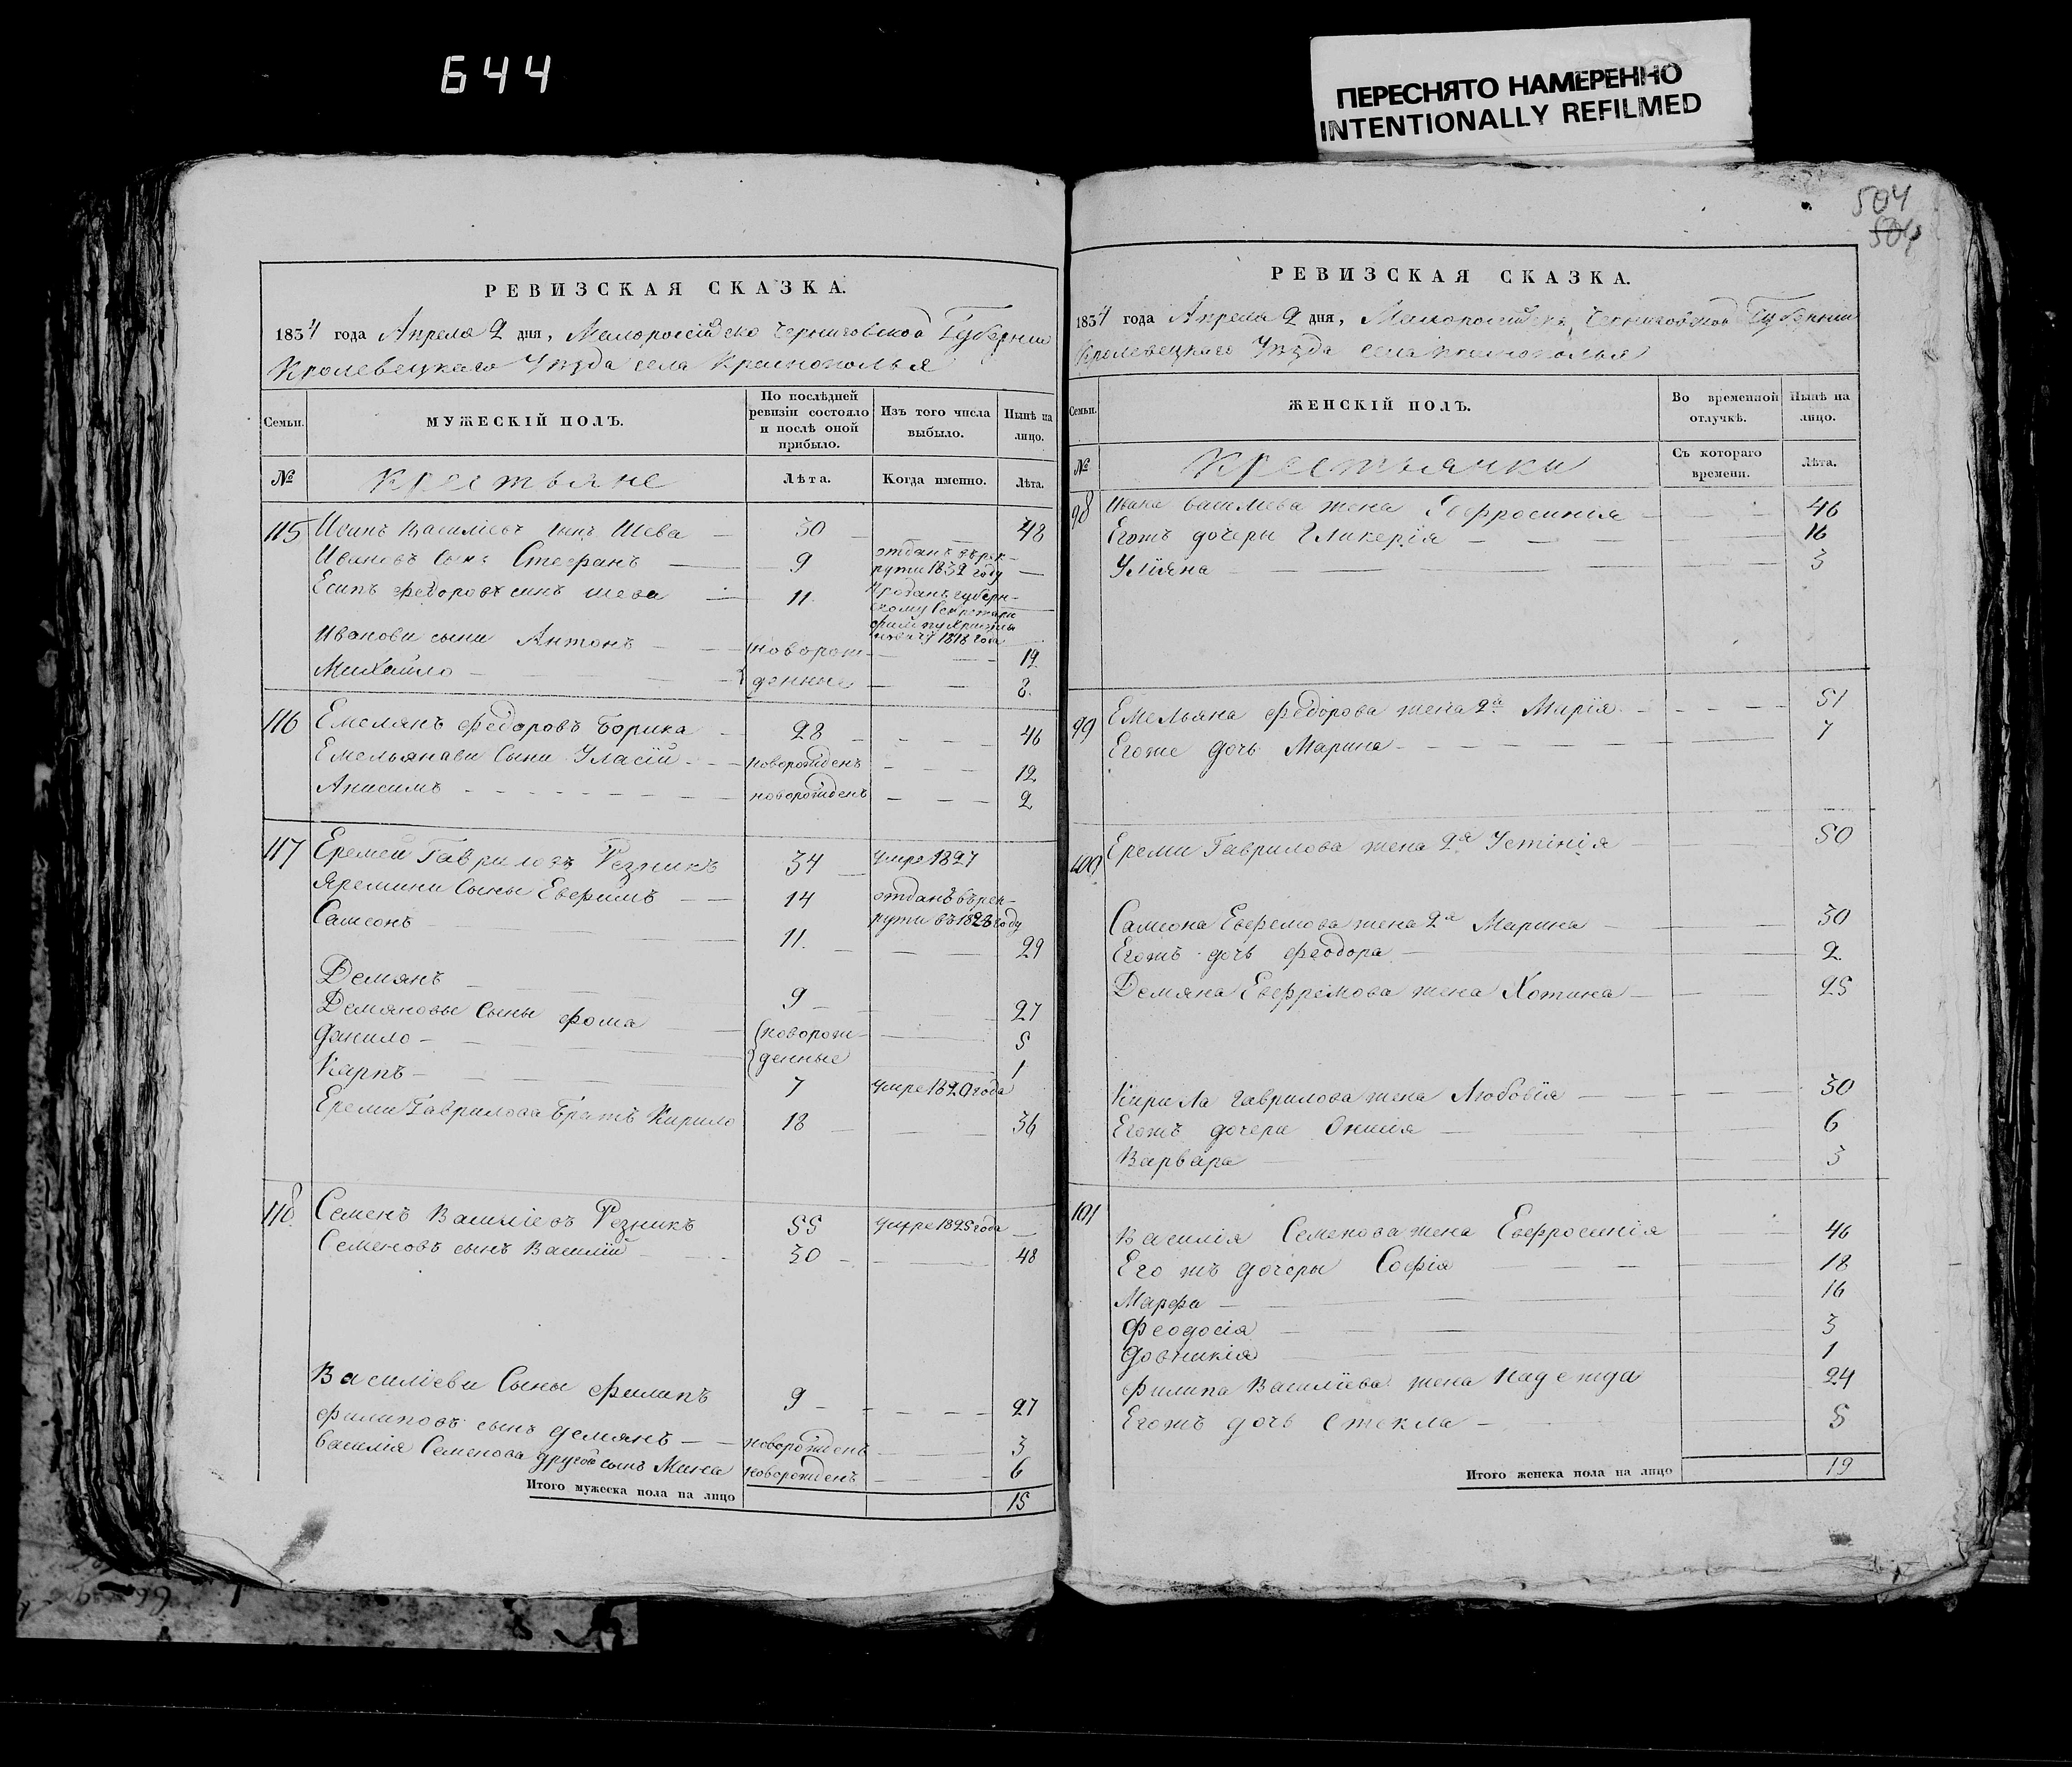 644
ПЕРЕСНЯТО НАМЕРЕННО
INTENTIONALLY REFILMED
504
504
РЕВИЗСКАЯ СКАЗКА.
1834 года Апреля 2 дня, Малоросійско Черниговской Губерніи
Кролевецкаго Уѣзда села Краснополья
Семьи.
МУЖЕСКІЙ ПОЛЪ.
По послѣдней ревизіи состояло и послѣ оной прибыло.
Изъ того числа выбыло.
Нынѣ на лицо.
№ Крестьяне Лѣта. Когда именно. Лѣта.
115 Василіевъ сынъ Шева 30 48
Ивановъ сынъ Стефанъ 9 отданъ въ рек-
рути 1832 году
Есипъ Федоровъ синъ шева 11. Проданъ губерн-
скому Секретарю
1818 года
Иванови сыни Антонъ новорож- 12
Михайло денные 8.
116 Емелянъ Федоровъ Борика 28 46
Емельянави Сыни Уласій новорожденъ 12
Анисимъ новорожденъ 2
117 Еремей Гавриловъ Резникъ 34 умре 1827
Яремини Сыны Евфимъ 14 отданъ въ рек-
рути въ 1828 году
Самсонъ 11. 29
Демянъ 9 27
Демяновы Сыны Фома новорож- 5
Данило денные 1
Карпъ 7 умре 1820 года
Ереми Гаврилова Братъ Кирило 18 36
118 Семенъ Василіевъ Резникъ 55 умре 1825 года
Семеновъ сынъ Василій 30 48
Василіеви Сыны Филипъ 9 27
Филиповъ сынъ демянъ новорожденъ 3
Василія Семенова другой сынъ Мина новорожденъ 6
Итого мужеска пола на лицо 15
РЕВИЗСКАЯ СКАЗКА.
1834 года Апреля 2 дня, Малоросійско Черниговской Губерніи
Кролевецкаго Уѣзда села Краснополья
Семьи.
ЖЕНСКІЙ ПОЛЪ.
Во временной отлучкѣ.
Нынѣ на лицо.
№ Крестьянки Съ котораго времени. Лѣта.
98 Ивана василіева жена Ефросинія 46
Егожъ дочери Гликерія 16
Уліяна 3
99 Емельяна Федорова жена 2я Марія 51
Егоже дочь Марина 7
100 Ереми Гаврилова жена 2я Устінія 50
Самсона Евфемова жена 2я Марина 30
Егожъ дочь Феодора 2
Демяна Евфремова жена Хотина 25
Кирила Гаврилова жена Любовія 30
Егожъ дочери 6
Варвара 3
101 Василія Семенова жена Евфросинія 46
Егожъ дочеры Софія 18
Марфа 16
Феодосія 3
Довникія 1
Филипа Василіева жена Надежда 24
Егожъ дочь Стекла 5
Итого женска пола на лицо 19